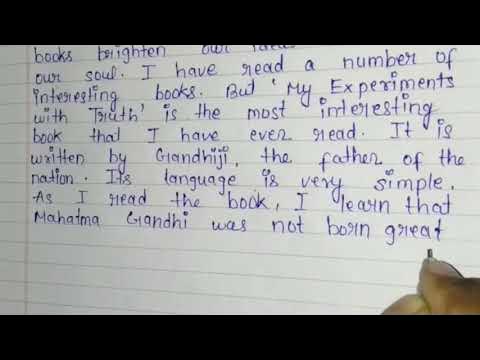 books brighten our ideas
our soul. I have read a number of
interesting books. But 'My Experiments
with Truth' is the most interesting
book that I have ever read. It is
written by Gandhiji, the father of the
nation. Its language is very simple.
As I read the book, I learn that
Mahatma Gandhi was not born great